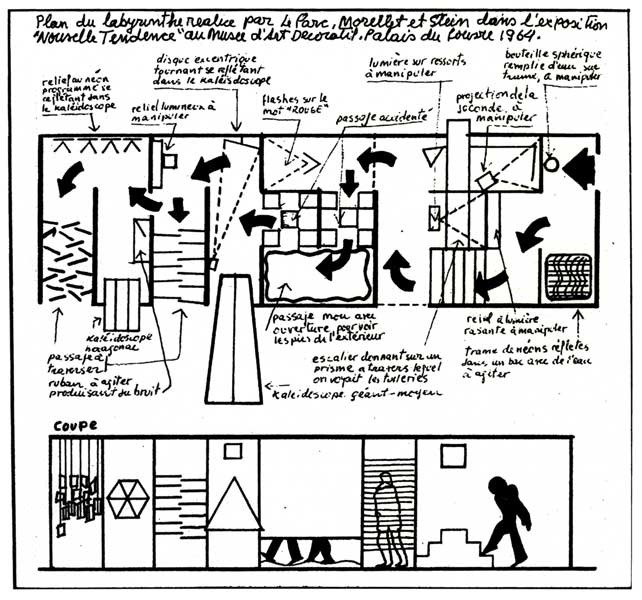 Plan du labyrinthe realice par Le Parc, Morellet et Stein dans l'exposition
"Nouvelle Tendence" au Musee d'Art Decoratif. Palais du Louvre 1964.
relief au néon
programmé se
refletant dans
le kaleidoscope
disque excentrique
tournant se reflétant
dans le kaleidoscope
relief lumineux à
manipuler
flashes sur le
mot "ROUGE"
passage accidenté
lumière sur ressorts
à manipuler
projection de la
seconde, à
manipuler
bouteille sphérique
remplie d'eau sur
trame, à manipuler
kaleidoscope
hexagonal
passage à
traverser
ruban à agiter
produisant du bruit
passage mou avec
ouverture pour voir
les pies de l'exterieur
escalier donnant sur un
prisme a travers lequel
on voyait les tuileries
kaleidoscope géant-moyen
relief à lumière
rasante à manipuler
trame de néons réfletés
dans un bac avec de l'eau
à agiter
COUPE